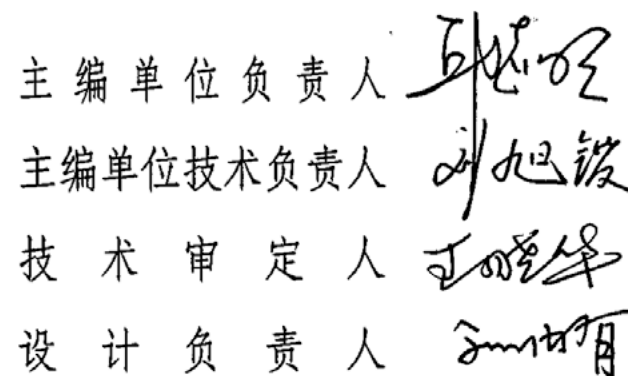 主编单位负责人
主编单位技术负责人 刘旭锼
技术审定人 王晓华
设计负责人